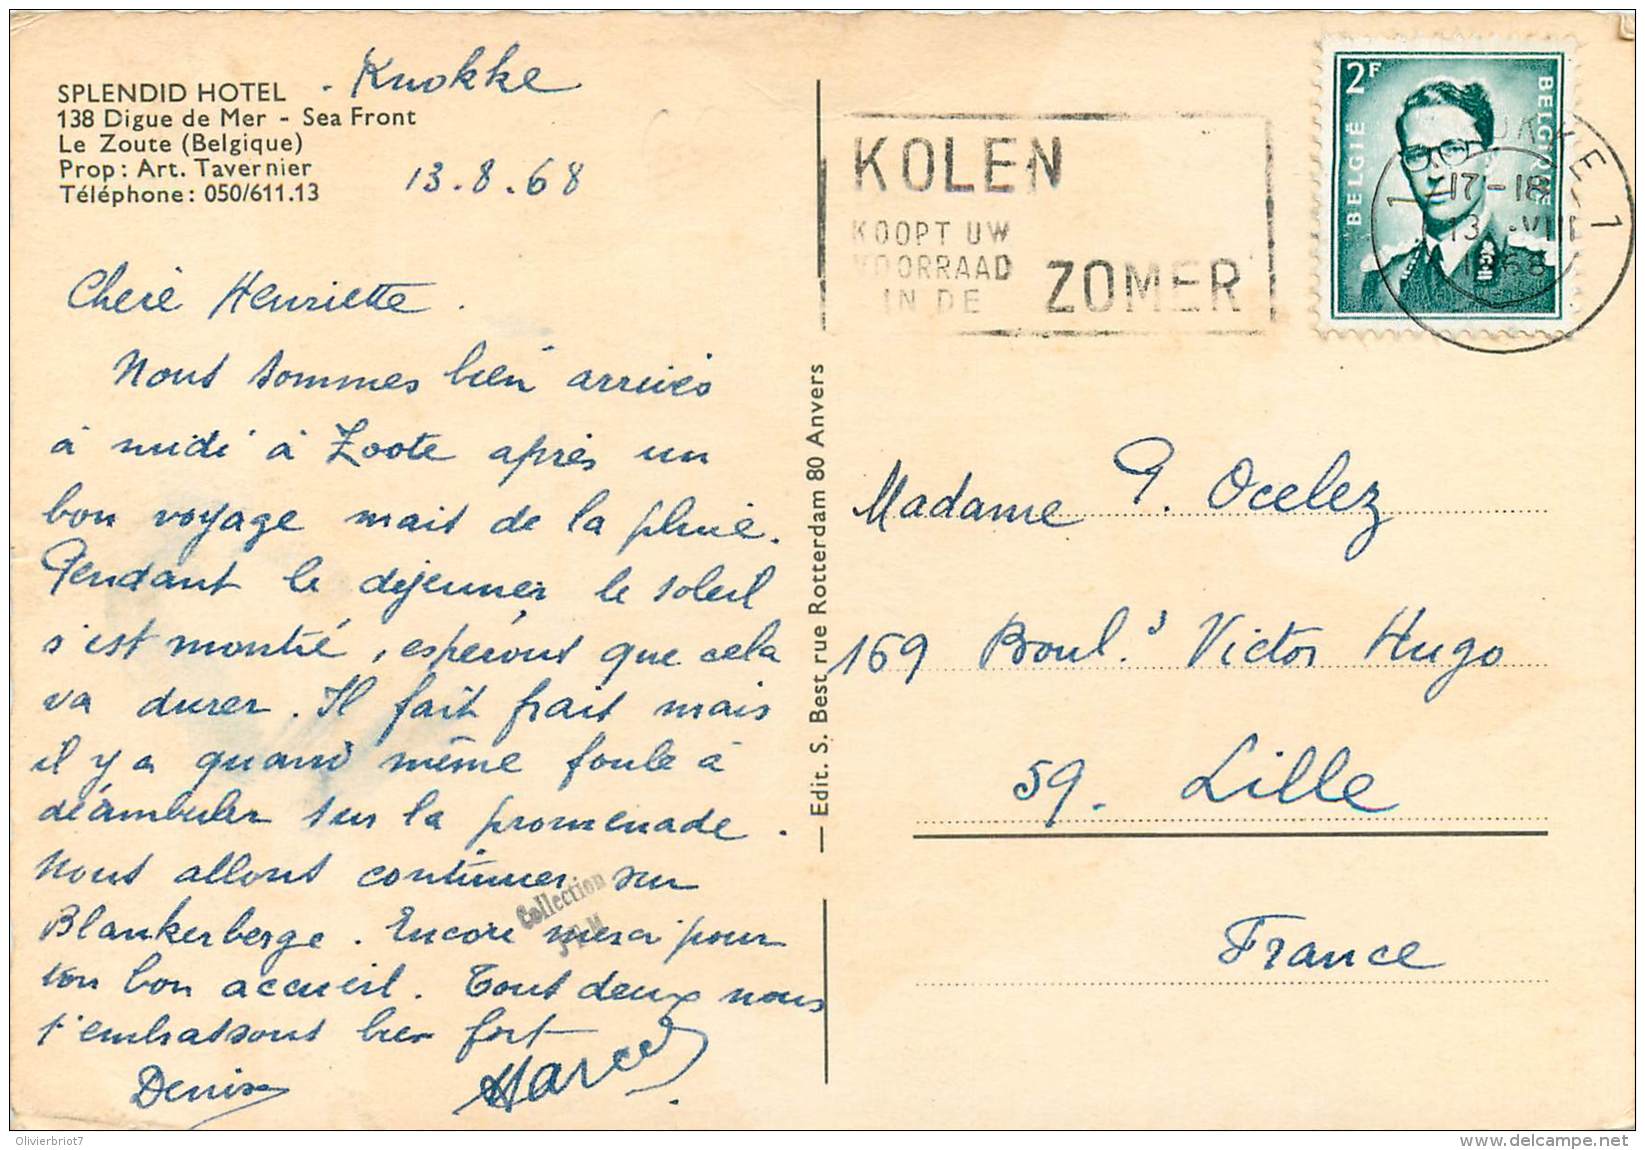 SPLENDID HOTEL . Knokke
138 Digue de Mer - Sea Front
Le Zoute (Belgique)
Prop: Art. Tavernier
Téléphone: 050/611.13
13.8.68
Chère Henriette.
Nous sommes bien arrivés
à midi à Zoote après un
bon voyage mais de la pluie.
Pendant le déjeuner le soleil
s'est montré, espérons que cela
va durer. Il fait frais mais
il y a quand même foule à
déambuler sur la promenade.
Nous allons continuer sur
Blankerberge. Encore merci pour
ton bon accueil. Tout deux nous
t'embrassons bien fort
Denise Marcel
Collection
— Edit. S. Best rue Rotterdam 80 Anvers
KOLEN
KOOPT UW
VOORRAAD
IN DE ZOMER
2F
BELGIË
BELGIQUE
KNOKKE 1
1
17-18
13-VIII
1968
Madame P. Ocelez
169 Boul.d Victor Hugo
59. Lille
France
Olivierbriot7
www.delcampe.net